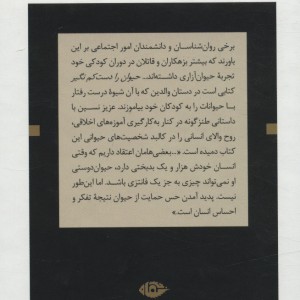 برخی روان‌شناسان و دانشمندان امور اجتماعی بر این
باورند که بیشتر بزهکاران و قاتلان در دوران کودکی خود
تجربهٔ حیوان‌آزاری داشته‌اند. حیوان را دست‌کم نگیر
کتابی است در دستان والدین که با آن شیوهٔ درست رفتار
با حیوانات را به کودکان خود بیاموزند. عزیز نسین با
داستانی طنزگونه در کنار به‌کارگیری آموزه‌های اخلاقی،
روح والای انسانی را در کالبد شخصیت‌های حیوانی این
کتاب دمیده است. «...بعضی‌هامان اعتقاد داریم که وقتی
انسان خودش هزار و یک بدبختی دارد، حیوان‌دوستی
او نمی‌تواند چیزی به جز یک فانتزی باشد. اما این‌طور
نیست. پدید آمدن حس حمایت از حیوان نتیجهٔ تفکر و
احساس انسان است.»